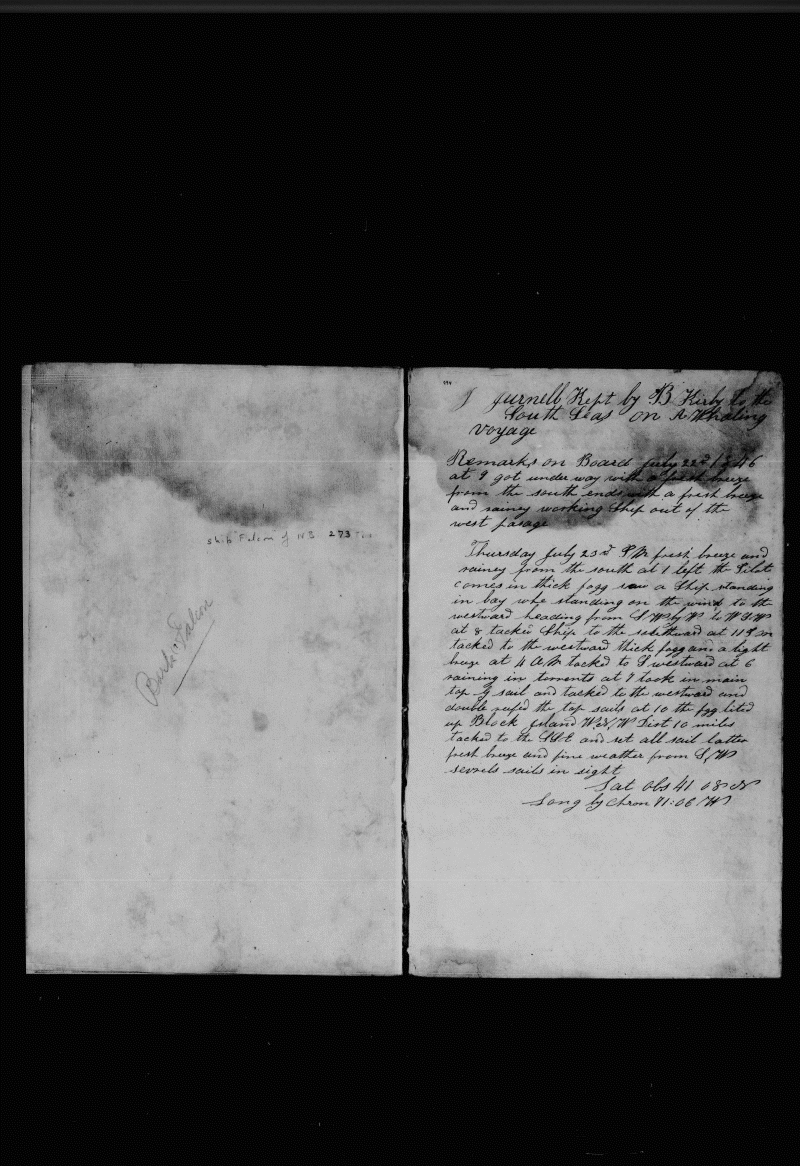 Ship Falcon of N B 273 Tons
Bark Falcon
Jurnell Kept by B Kirby to the
South Seas on A Whaling
voyage
Remarks on Board July 22nd 1846
at 9 got under way with a fresh breeze
from the south ends with a fresh breeze
and rainey working Ship out of the
west pasage
Thursday July 23rd P M fresh breeze and
rainey from the south at 1 left the Pilot
comes in thick fogg saw a Ship standing
in bay whe standing on the wind to the
westward heading from S W by W to W S W
at 8 tacked Ship to the southward at 11
tacked to the westward thick fogg and a light
breze at 4 A M tacked to S westward at 6
raining in torrents at 7 took in main
top g sail and tacked to the westward and
double reefed the top sails at 10 the fgg lited
up Block Island W N W Dist 10 miles
tacked to the and set all sail latter
fresh breeze and fine weather from S W
sevrels sails in sight
Lat Obs 41 08 N
Long by Chron 71:06 W